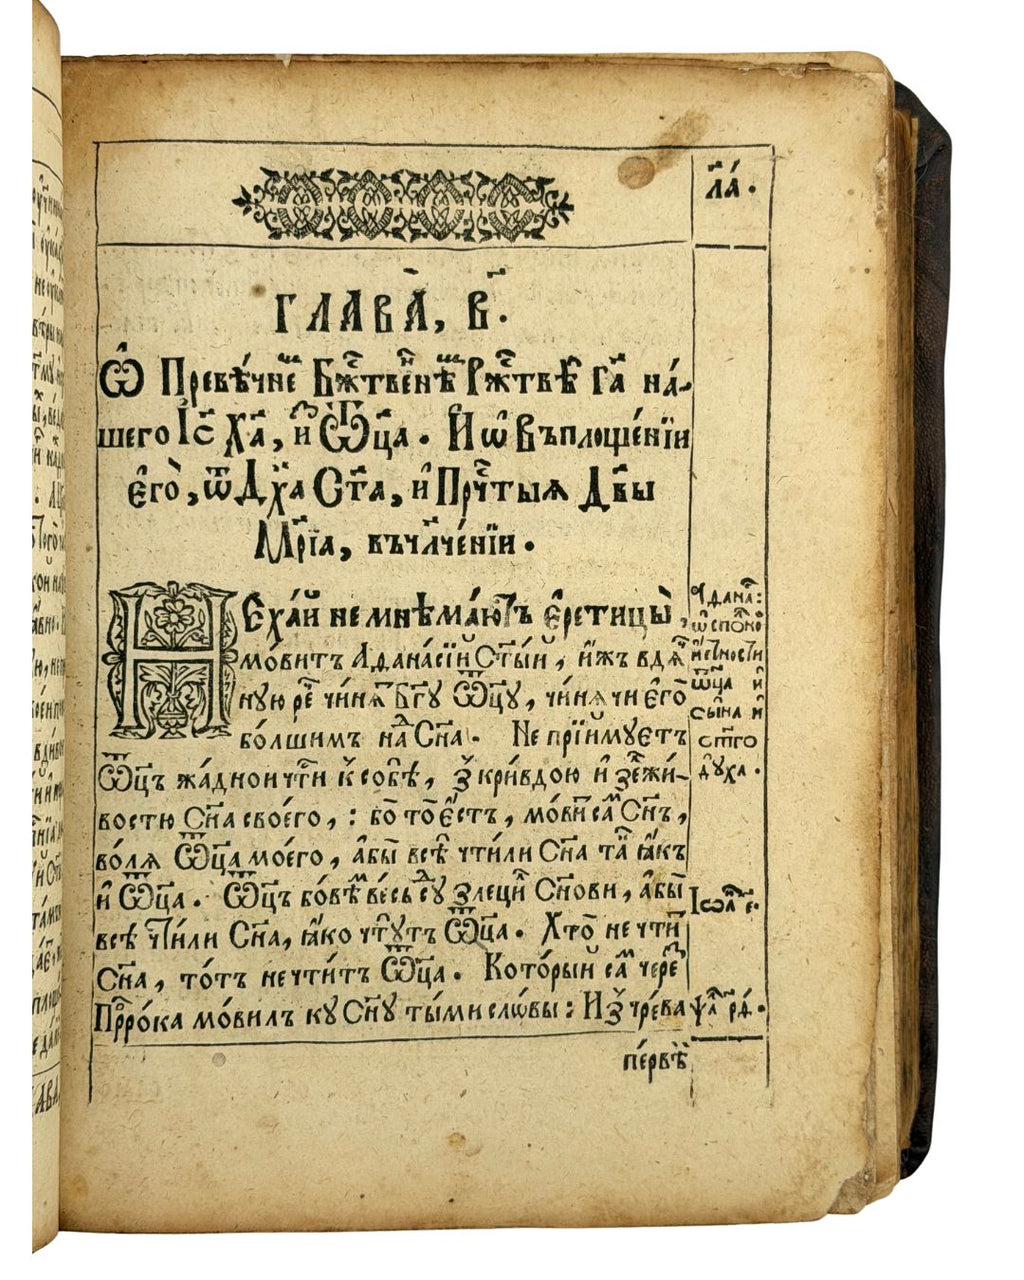 л҃а.
ГЛАВА̀, в҃.
Ѽ Превѣ́чнеⷨ Бж҃твеннеⷨ Рж҃твѣ Га҃ на́-
шего І҆с҃ Ха҃, и҆ Ѿц҃а. И҆ ѡ҆ Въплоще́нїи
є҆гѡ̀, ѿ Дх҃а Ст҃а, и҆ Прⷱ҇тыѧ Дв҃ы
Мр҃їа, въчл҃че́нїи.
НЕха́й не мнѣма́ютъ є҆ретицы̀,
мо́витъ Аѳана́сїй Ст҃ый, и҆жъ
ную чи́нѧⷮ Бг҃у Ѿц҃у, чи́нѧчи є҆го̀
бо́лшимъ наⷣ Сн҃а. Не прїиму́етъ
Ѿц҃ъ жа́днои чт҃и к҆ собѣ, з҆ кри́вдою и҆ зеⷧжи́-
востю Сн҃а своего, : бо̀ то̀ є҆стъ, мо́виⷮ саⷨ Сн҃ъ,
во́лѧ Ѿц҃а моего, а҆бы̀ всѣ̀ чти́ли Сн҃а таⷦ ꙗ҆къ
и҆ Ѿц҃а. Ѿц҃ъ бо́вѣⷨ ве́сь сꙋⷣ злециⷧ Сн҃ови, а҆бы̀
всѣ̀ чти́ли Сн҃а, ꙗ҆ко чтꙋ́тъ Ѿц҃а. Хто̀ не чтиⷮ
Сн҃а, то́тъ не чти́тъ Ѿц҃а. Кото́рый саⷨ череⷥ
Прⷪ҇ро́ка мо́вилъ кꙋ Сн҃ꙋ ты́ми сло́вы: И҆з̾ чре́ва
пе́рвѣй
Аѳанаⷭ:
и҆стности
ѿц҃а и҆
сы́на и҆
ст҃го
дꙋ́ха.
Іѡаⷩ є҃.
ѱаⷧ р҃ѳ.